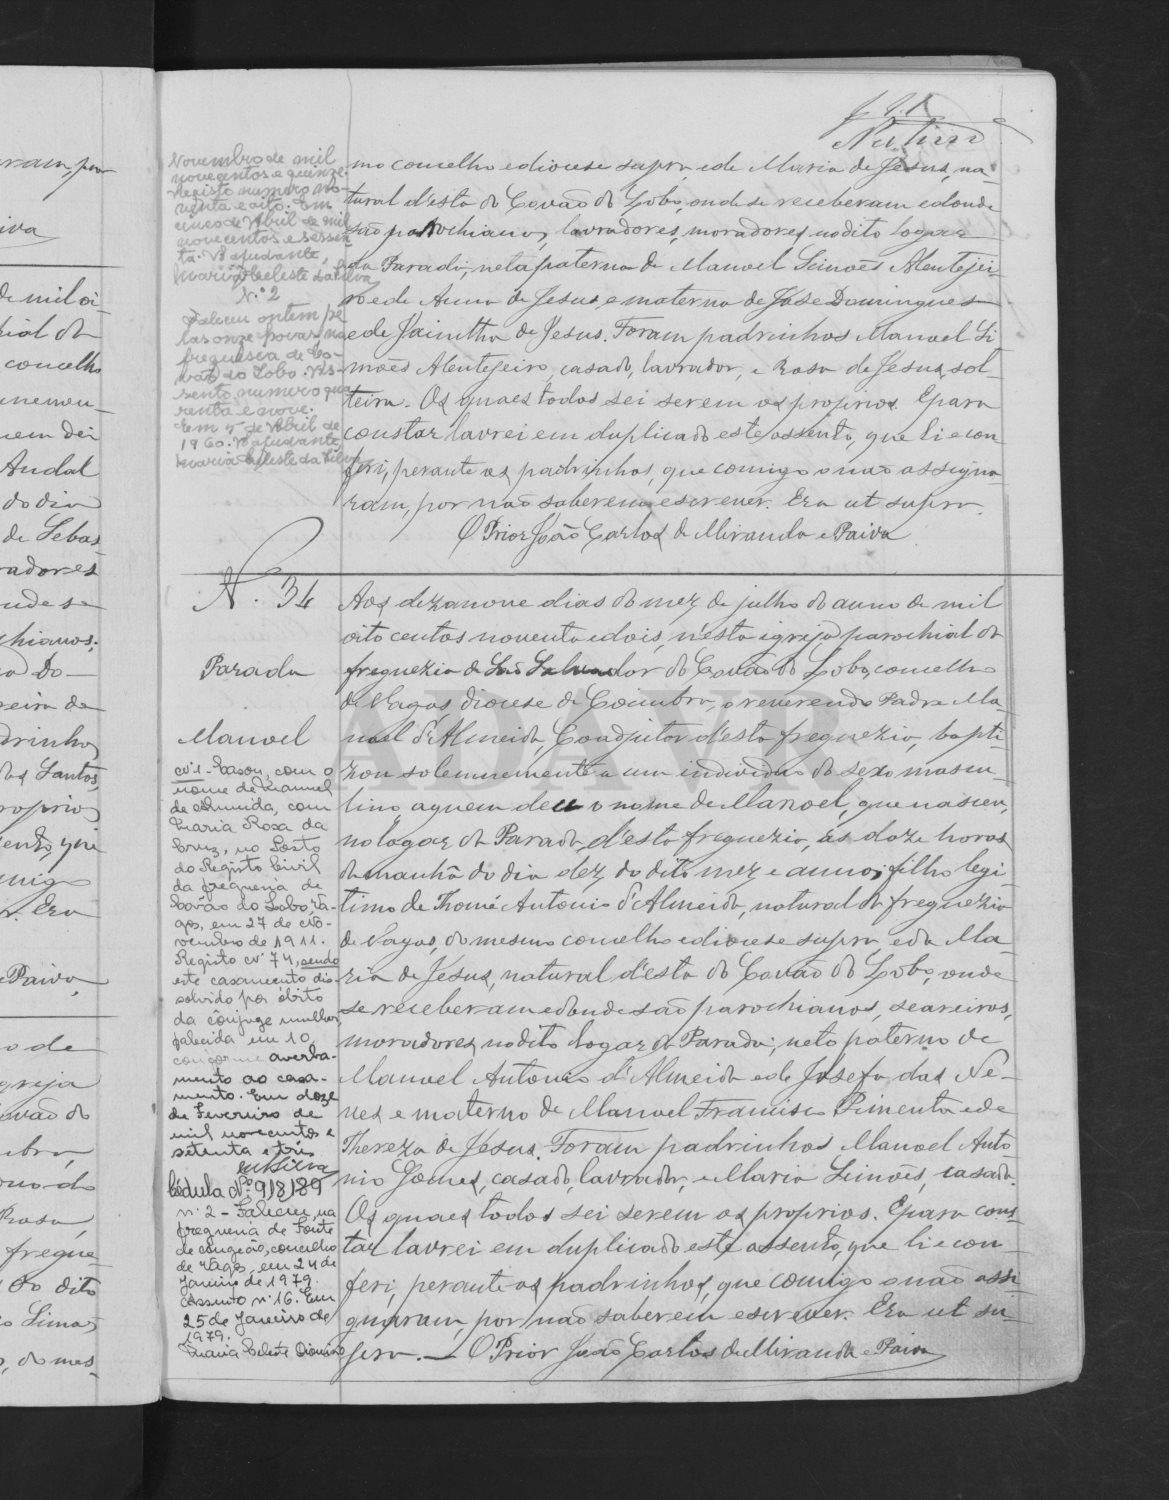 Novembro de mil
novecentos e quinze.
Registo numero no-
venta e oito. Em
cinco de Abril de mil
novecentos e sessen
ta. O ajudante,
Maria Celeste da Silva
N.º 2
Faleceu ontem pe
las onze horas na
freguesia de Co-
vão do Lobo. As-
sento numero qua
renta e nove.
Em 5 de Abril de
1960. O ajudante,
Maria Celeste da Silva
mo concelho e diocese supra e de Maria de Jesus, na-
tural d'esta do Covão do Lobo, onde se receberam e donde
são parochianos, lavradores, moradores no dito logar
da Parada; neta paterna de Manoel Simões Alentejei-
ro e de Anna de Jesus, e materna de José Domingues
e de Jacintha de Jesus. Foram padrinhos Manoel Si
mões Alentejeiro, casado, lavrador, e Rosa de Jesus, sol-
teira. Os quaes todos sei serem os proprios. E para
constar lavrei em duplicado este assento, que li e con
feri, perante os padrinhos, que comigo o não assigna-
ram, por não saberem escrever. Era ut supra.
O Prior João Carlos de Miranda e Paiva
N. 34
Parada
Manoel
Aos dezanove dias do mez de julho do anno de mil
oito centos noventa e dois, n'esta igreja parochial da
freguezia de São Salvador do Covão do Lobo, concelho
de Vagos, diocese de Coimbra, o reverendo Padre Ma-
noel d'Almeida, Coadjutor d'esta freguezia, bapti-
zou solemnemente a um individuo do sexo mascu-
lino a quem deu o nome de Manoel, que nasceu,
no logar da Parada, d'esta freguezia, ás doze horas
da manhã do dia dez do dito mez e anno; filho legi-
timo de Thomé Antonio d'Almeida, natural da freguezia
de Vagos, do mesmo concelho e diocese supra e da Ma-
ria de Jesus, natural d'esta do Covão do Lobo, onde
se receberam e donde são parochianos, seareiros,
moradores no dito logar da Parada; neto paterno de
Manoel Antonio d'Almeida e de Josefa das Ne-
ves e materno de Manoel Francisco Pimenta e de
Thereza de Jesus. Foram padrinhos Manoel Anto-
nio Gomes, casado, lavrador, e Maria Simões, casada.
Os quaes todos sei serem os proprios. E para cons-
tar lavrei em duplicado este assento, que li e con-
feri, perante os padrinhos, que comigo o não assi
gnaram, por não saberem escrever. Era ut su-
pra. — O Prior João Carlos de Miranda e Paiva
nº 1 - Casou, com o
nome de Manuel
de Almeida, com
Maria Rosa da
Cruz, no Posto
do Registo Civil
da freguesia de
Covão do Lobo, Va-
gos, em 27 de No-
vembro de 1911.
Registo nº 74, sendo
este casamento dis-
solvido por óbito
da cônjuge mulher,
falecida em 10,
conforme averba-
mento ao casa-
mento. Em doze
de Fevereiro de
mil novecentos e
setenta e três
Cédula Nº 918189
nº 2 - Faleceu, na
freguesia de Fonte
de Angeão, concelho
de Vagos, em 24 de
Janeiro de 1979.
Assento nº 16. Em
25 de Janeiro de
1979.
ADAVR